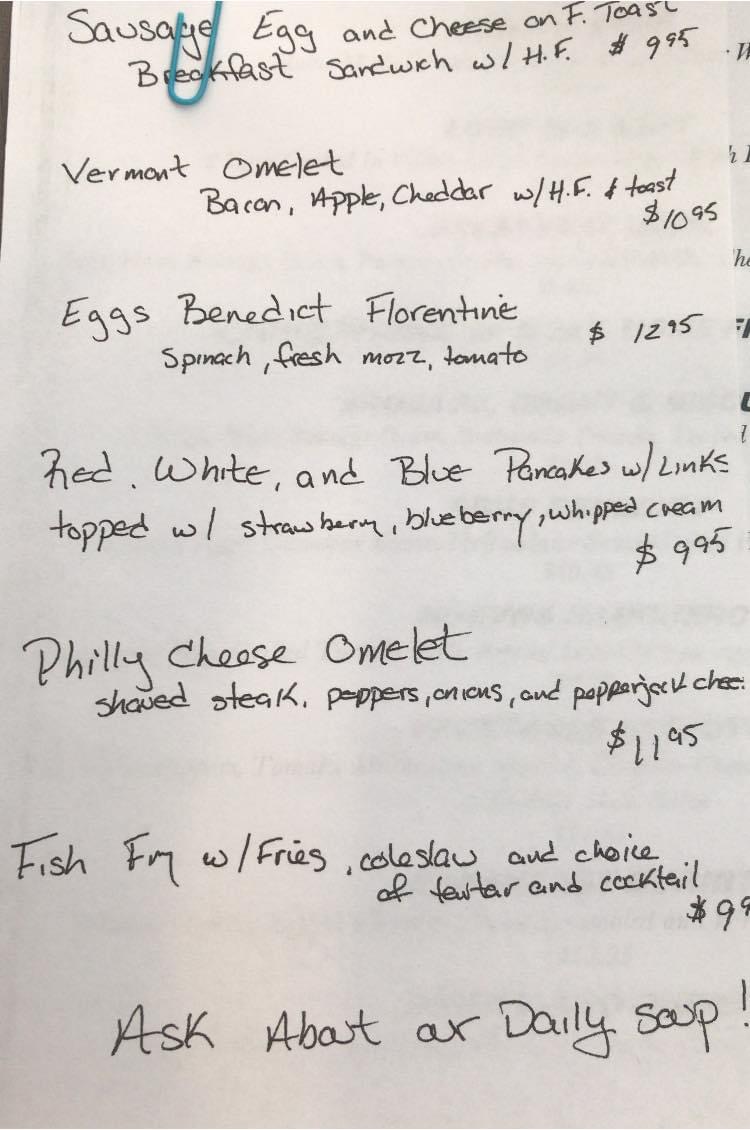 Sausage Egg and Cheese on F. Toast
Breakfast Sandwich w/ H.F. $ 9.95
Vermont Omelet
Bacon, Apple, Cheddar w/ H.F. & toast
$10.95
Eggs Benedict Florentine $ 12.95
Spinach, fresh mozz, tomato
Red, White, and Blue Pancakes w/ Links
topped w/ strawberry, blueberry, whipped cream
$ 9.95
Philly Cheese Omelet
shaved steak, peppers, onions, and pepperjack chee
$11.95
Fish Fry w/ Fries, coleslaw and choice
of tartar and cocktail
$ 99
Ask About our Daily Soup!